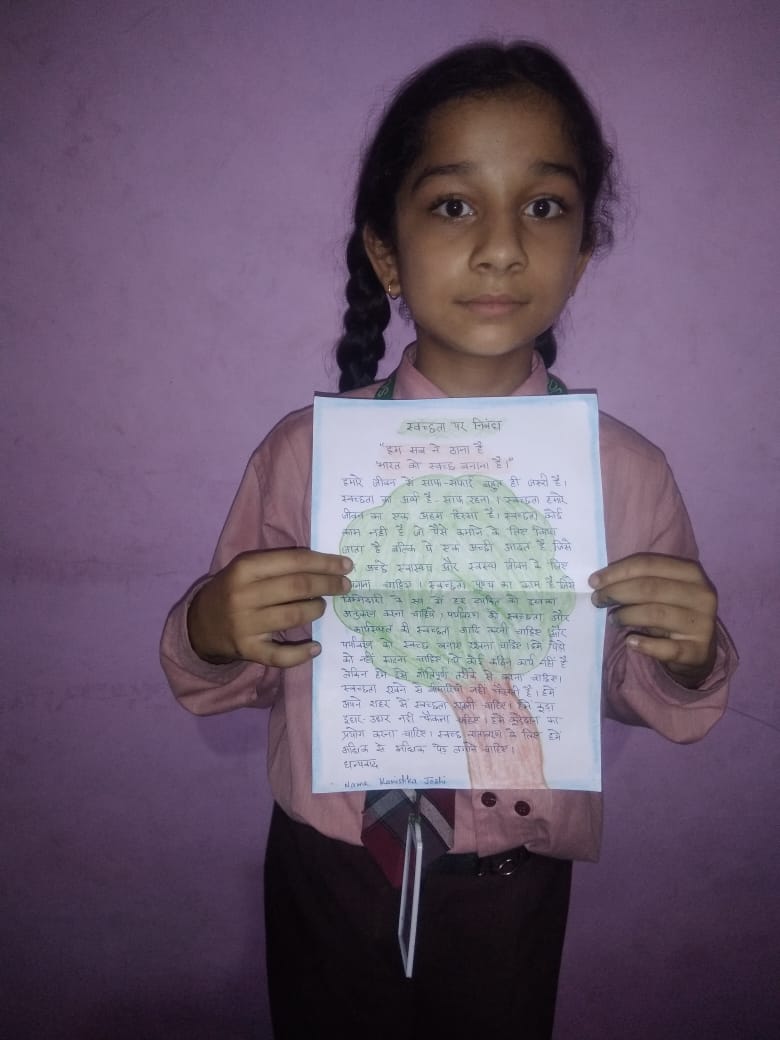 स्वच्छता पर निबंध
"हम सब ने ठाना है
भारत को स्वच्छ बनाना है।"
हमारे जीवन में साफ-सफाई बहुत ही जरूरी है।
स्वच्छता का अर्थ है - साफ रहना। स्वच्छता हमारे
जीवन का एक अहम हिस्सा है। स्वच्छता कोई
काम नहीं है जो पैसे कमाने के लिए किया
जाता है बल्कि ये एक अच्छी आदत है जिसे
अच्छे स्वास्थ्य और स्वस्थ जीवन के लिए
चाहिए। स्वच्छता पुण्य का काम है जिसे
जिम्मेदारी के रूप में हर व्यक्ति को इसका
अनुकरण करना चाहिए। पर्यावरण की स्वच्छता और
की स्वच्छता आदि करनी चाहिए और
पर्यावरण को स्वच्छ बनाए रखना चाहिए। हमें पेड़ो
को नहीं काटना चाहिए। ये कोई कठिन कार्य नहीं है
लेकिन हमें इसे तरीके से करना चाहिए।
स्वच्छता रखने से बीमारियाँ नहीं फैलती है। हमें
अपने शहर में स्वच्छता रखनी चाहिए। हमें कुड़ा
इधर-उधर नहीं फेंकना चाहिए। हमें कुड़ेदान का
प्रयोग करना चाहिए। स्वच्छ वातावरण के लिए हमें
अधिक से अधिक पेड़ लगाने चाहिए।
धन्यवाद
Name Kanishka Joshi